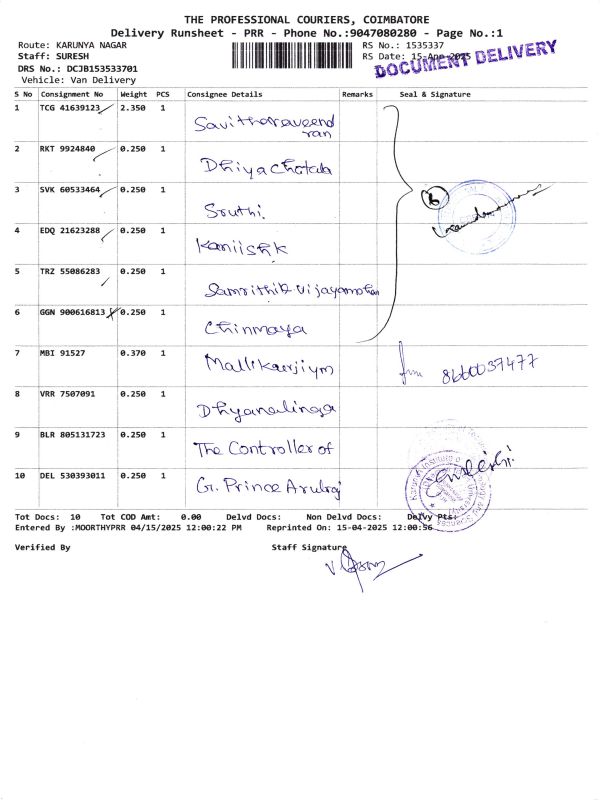 THE PROFESSIONAL COURIERS, COIMBATORE
Delivery Runsheet - PRR - Phone No.:9047080280 - Page No.:1
Route: KARUNYA NAGAR RS No.: 1535337
Staff: SURESH RS Date: 15-Apr-2025
DOCUMENT DELIVERY
DRS No.: DCJB153533701
Vehicle: Van Delivery
S No Consignment No Weight PCS Consignee Details Remarks Seal & Signature
1 TCG 41639123 2.350 1 Savitharaveend
ran
2 RKT 9924840 0.250 1 Dhiya Chotala
3 SVK 60533464 0.250 1 Sruthi.
6
4 EDQ 21623288 0.250 1 Kaniishk
5 TRZ 55086283 0.250 1 Samrithik Vijayamohan
6 GGN 900616813 0.250 1 Chinmaya
7 MBI 91527 0.370 1 Mallikarjiym 8660037477
8 VRR 7507091 0.250 1 Dhyanalinga
9 BLR 805131723 0.250 1 The Controller of
10 DEL 530393011 0.250 1 G. Prince Arulraj
Tot Docs: 10 Tot COD Amt: 0.00 Delvd Docs: Non Delvd Docs: Delvy Pts:
Entered By :MOORTHYPRR 04/15/2025 12:00:22 PM Reprinted On: 15-04-2025 12:00:56
Verified By Staff Signature